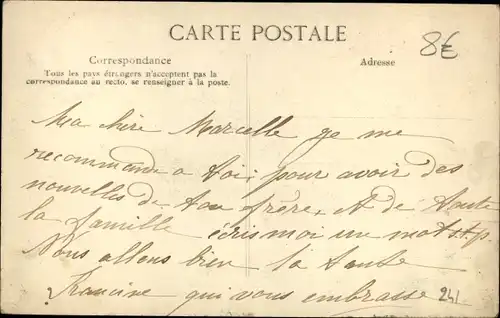 CARTE POSTALE
8€
Correspondance
Adresse
Tous les pays étrangers n'acceptent pas la
correspondance au recto, se renseigner à la poste.
Ma chère Marcelle ge me
recommande a toi pour avoir des
nouvelles de ton frère, A de toute
la famille écris moi un mot s.t.p.
Nous allons bien ta tante
Francine qui vous embrasse
241